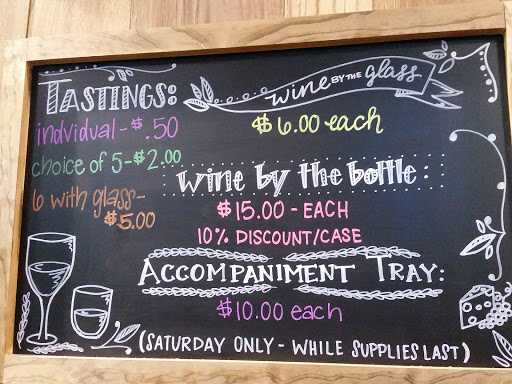 TASTINGS:
indvidual - $.50
choice of 5 - $2.00
6 with glass -
$5.00
wine BY THE glass
$6.00 each
wine by the bottle:
$15.00 - EACH
10% DISCOUNT/CASE
ACCOMPANIMENT TRAY:
$10.00 each
(SATURDAY ONLY - WHILE SUPPLIES LAST)